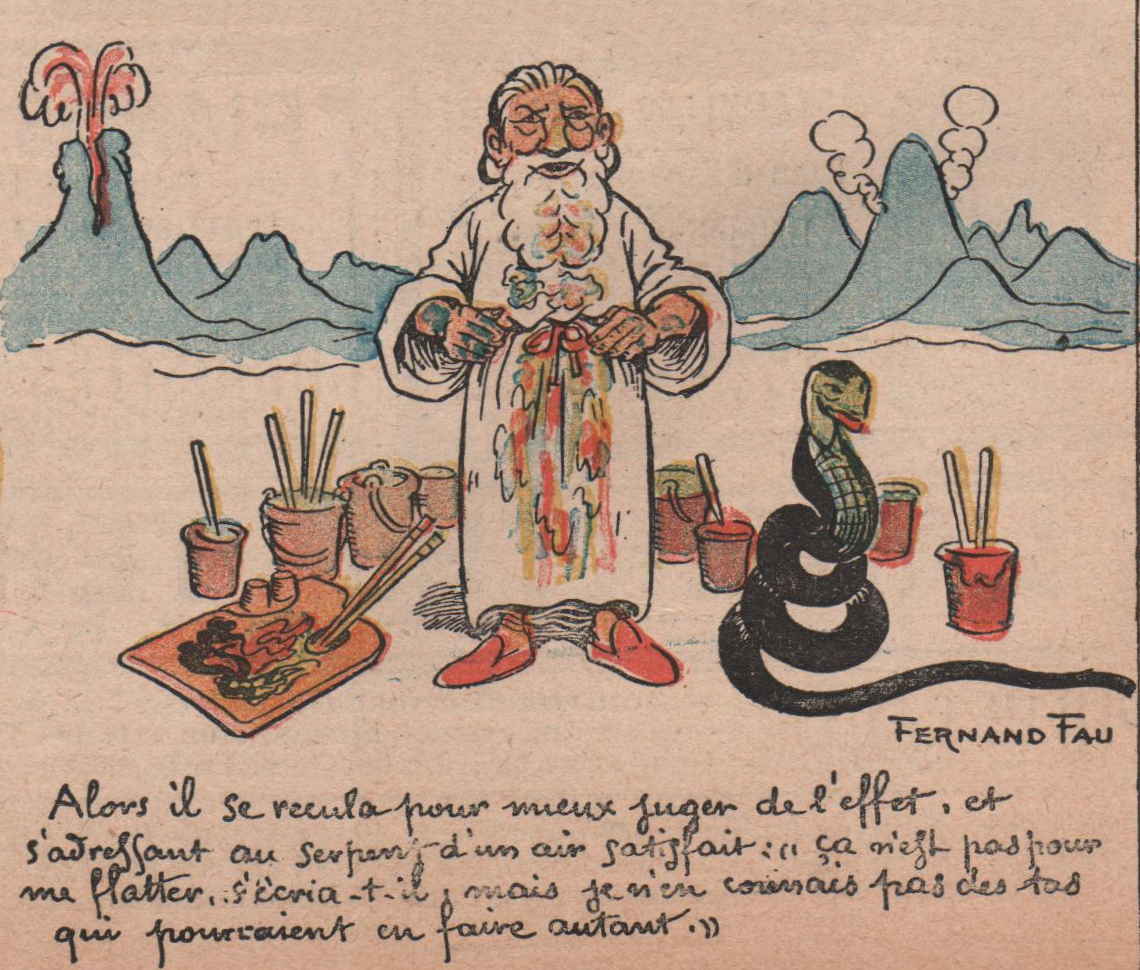 FERNAND FAU
Alors il se recula pour mieux juger de l'effet, et
s'adressant au serpent d'un air satisfait : « ça n'est pas pour
me flatter, s'écria-t-il, mais je n'en connais pas des tas
qui pourraient en faire autant. »